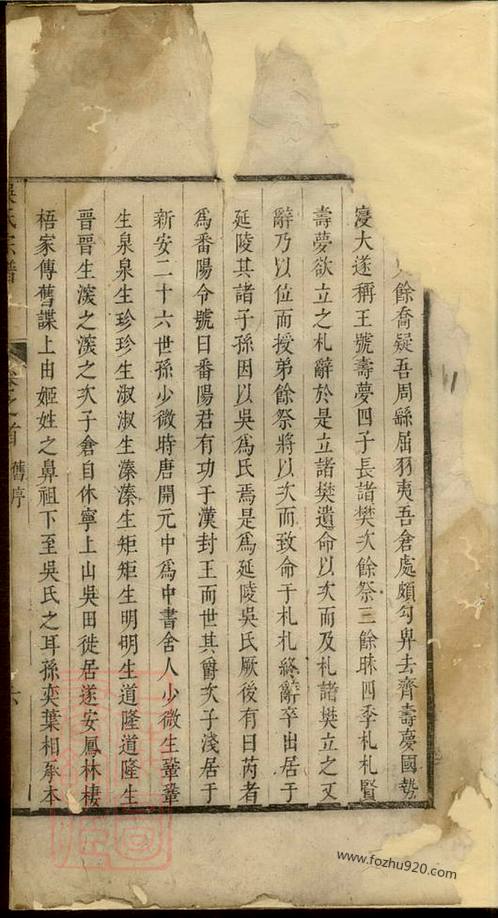 餘喬疑吾周繇屈羽夷吾禽處頗勾畀去齊壽慶國勢
寖大遂稱王號壽夢四子長諸樊次餘祭三餘眜四季札札賢
壽夢欲立之札辭於是立諸樊遺命以次而及札諸樊立之又
辭乃以位而授弟餘祭將以次而致命于札札終辭卒出居于
延陵其諸子孫因以吳爲氏焉是爲延陵吳氏厥後有曰芮者
爲番陽令號曰番陽君有功于漢封王而世其爵次子淺居于
新安二十六世孫少微時唐開元中爲中書舍人少微生鞏鞏
生泉泉生珍珍生淑淑生溱溱生矩矩生明明生道隆道隆生
晉晉生渼之渼之次子倉自休寧上山吳田徙居遂安鳳林棲
梧家傳舊諜上由姬姓之鼻祖下至吳氏之耳孫奕葉相承本
吳氏宗譜 卷之首 舊序 六
www.fozhu920.com